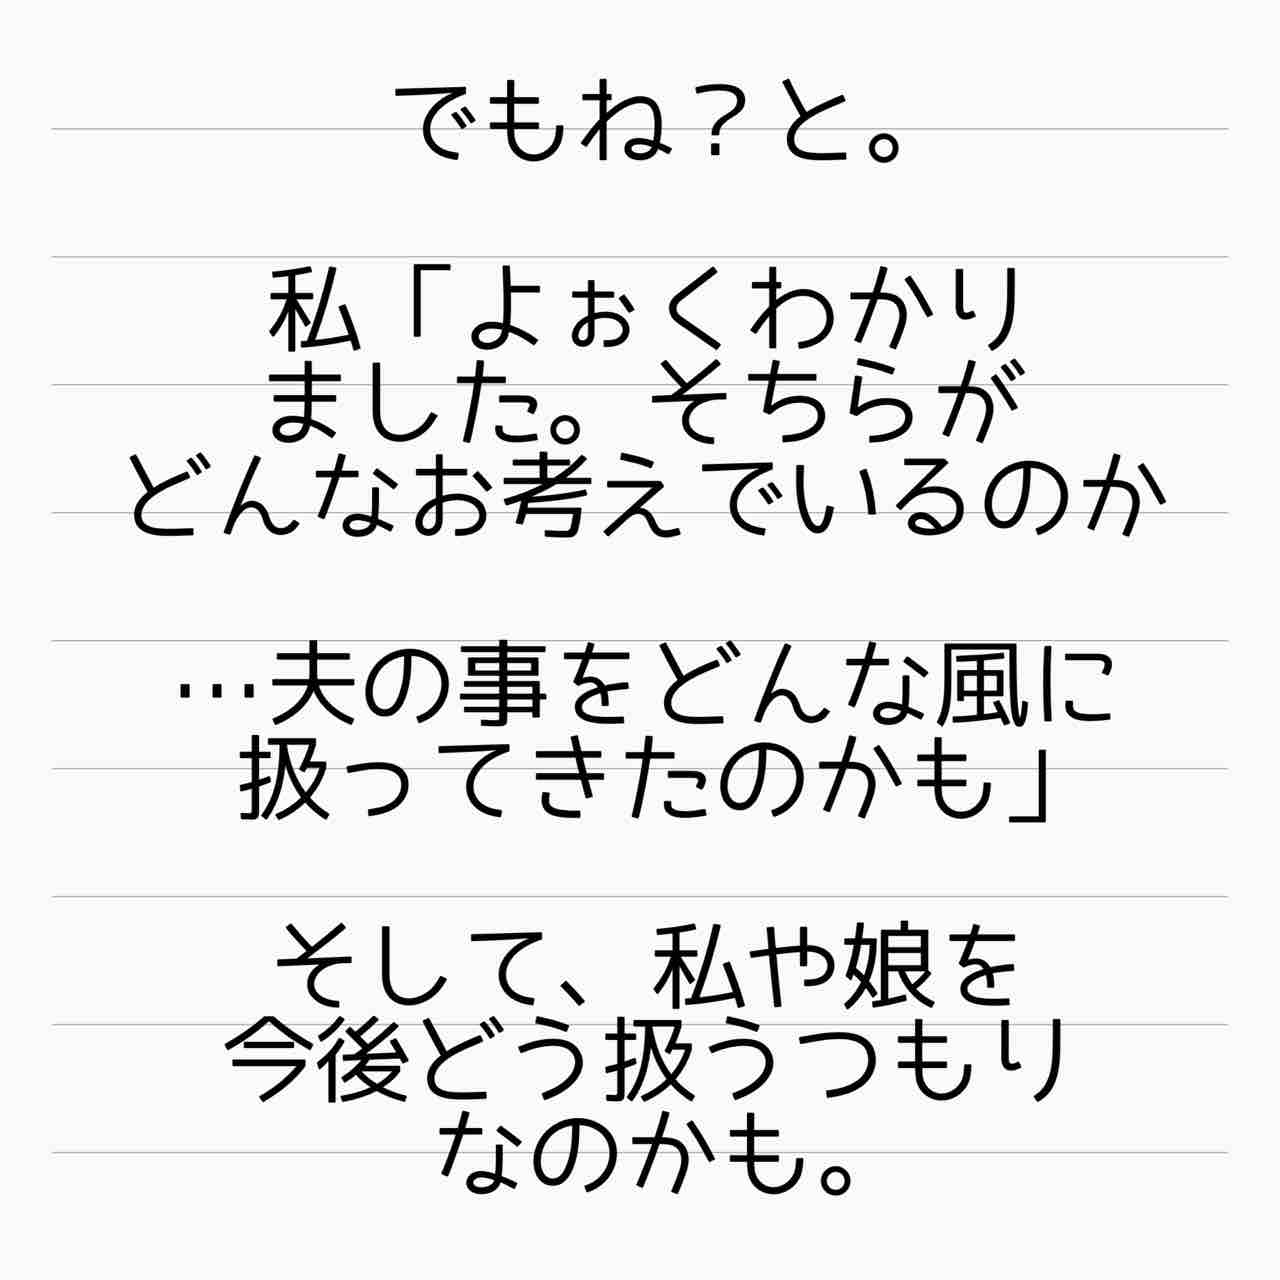 でもね？と。
私「よぉくわかり
ました。そちらが
どんなお考えでいるのか
…夫の事をどんな風に
扱ってきたのかも」
そして、私や娘を
今後どう扱うつもり
なのかも。